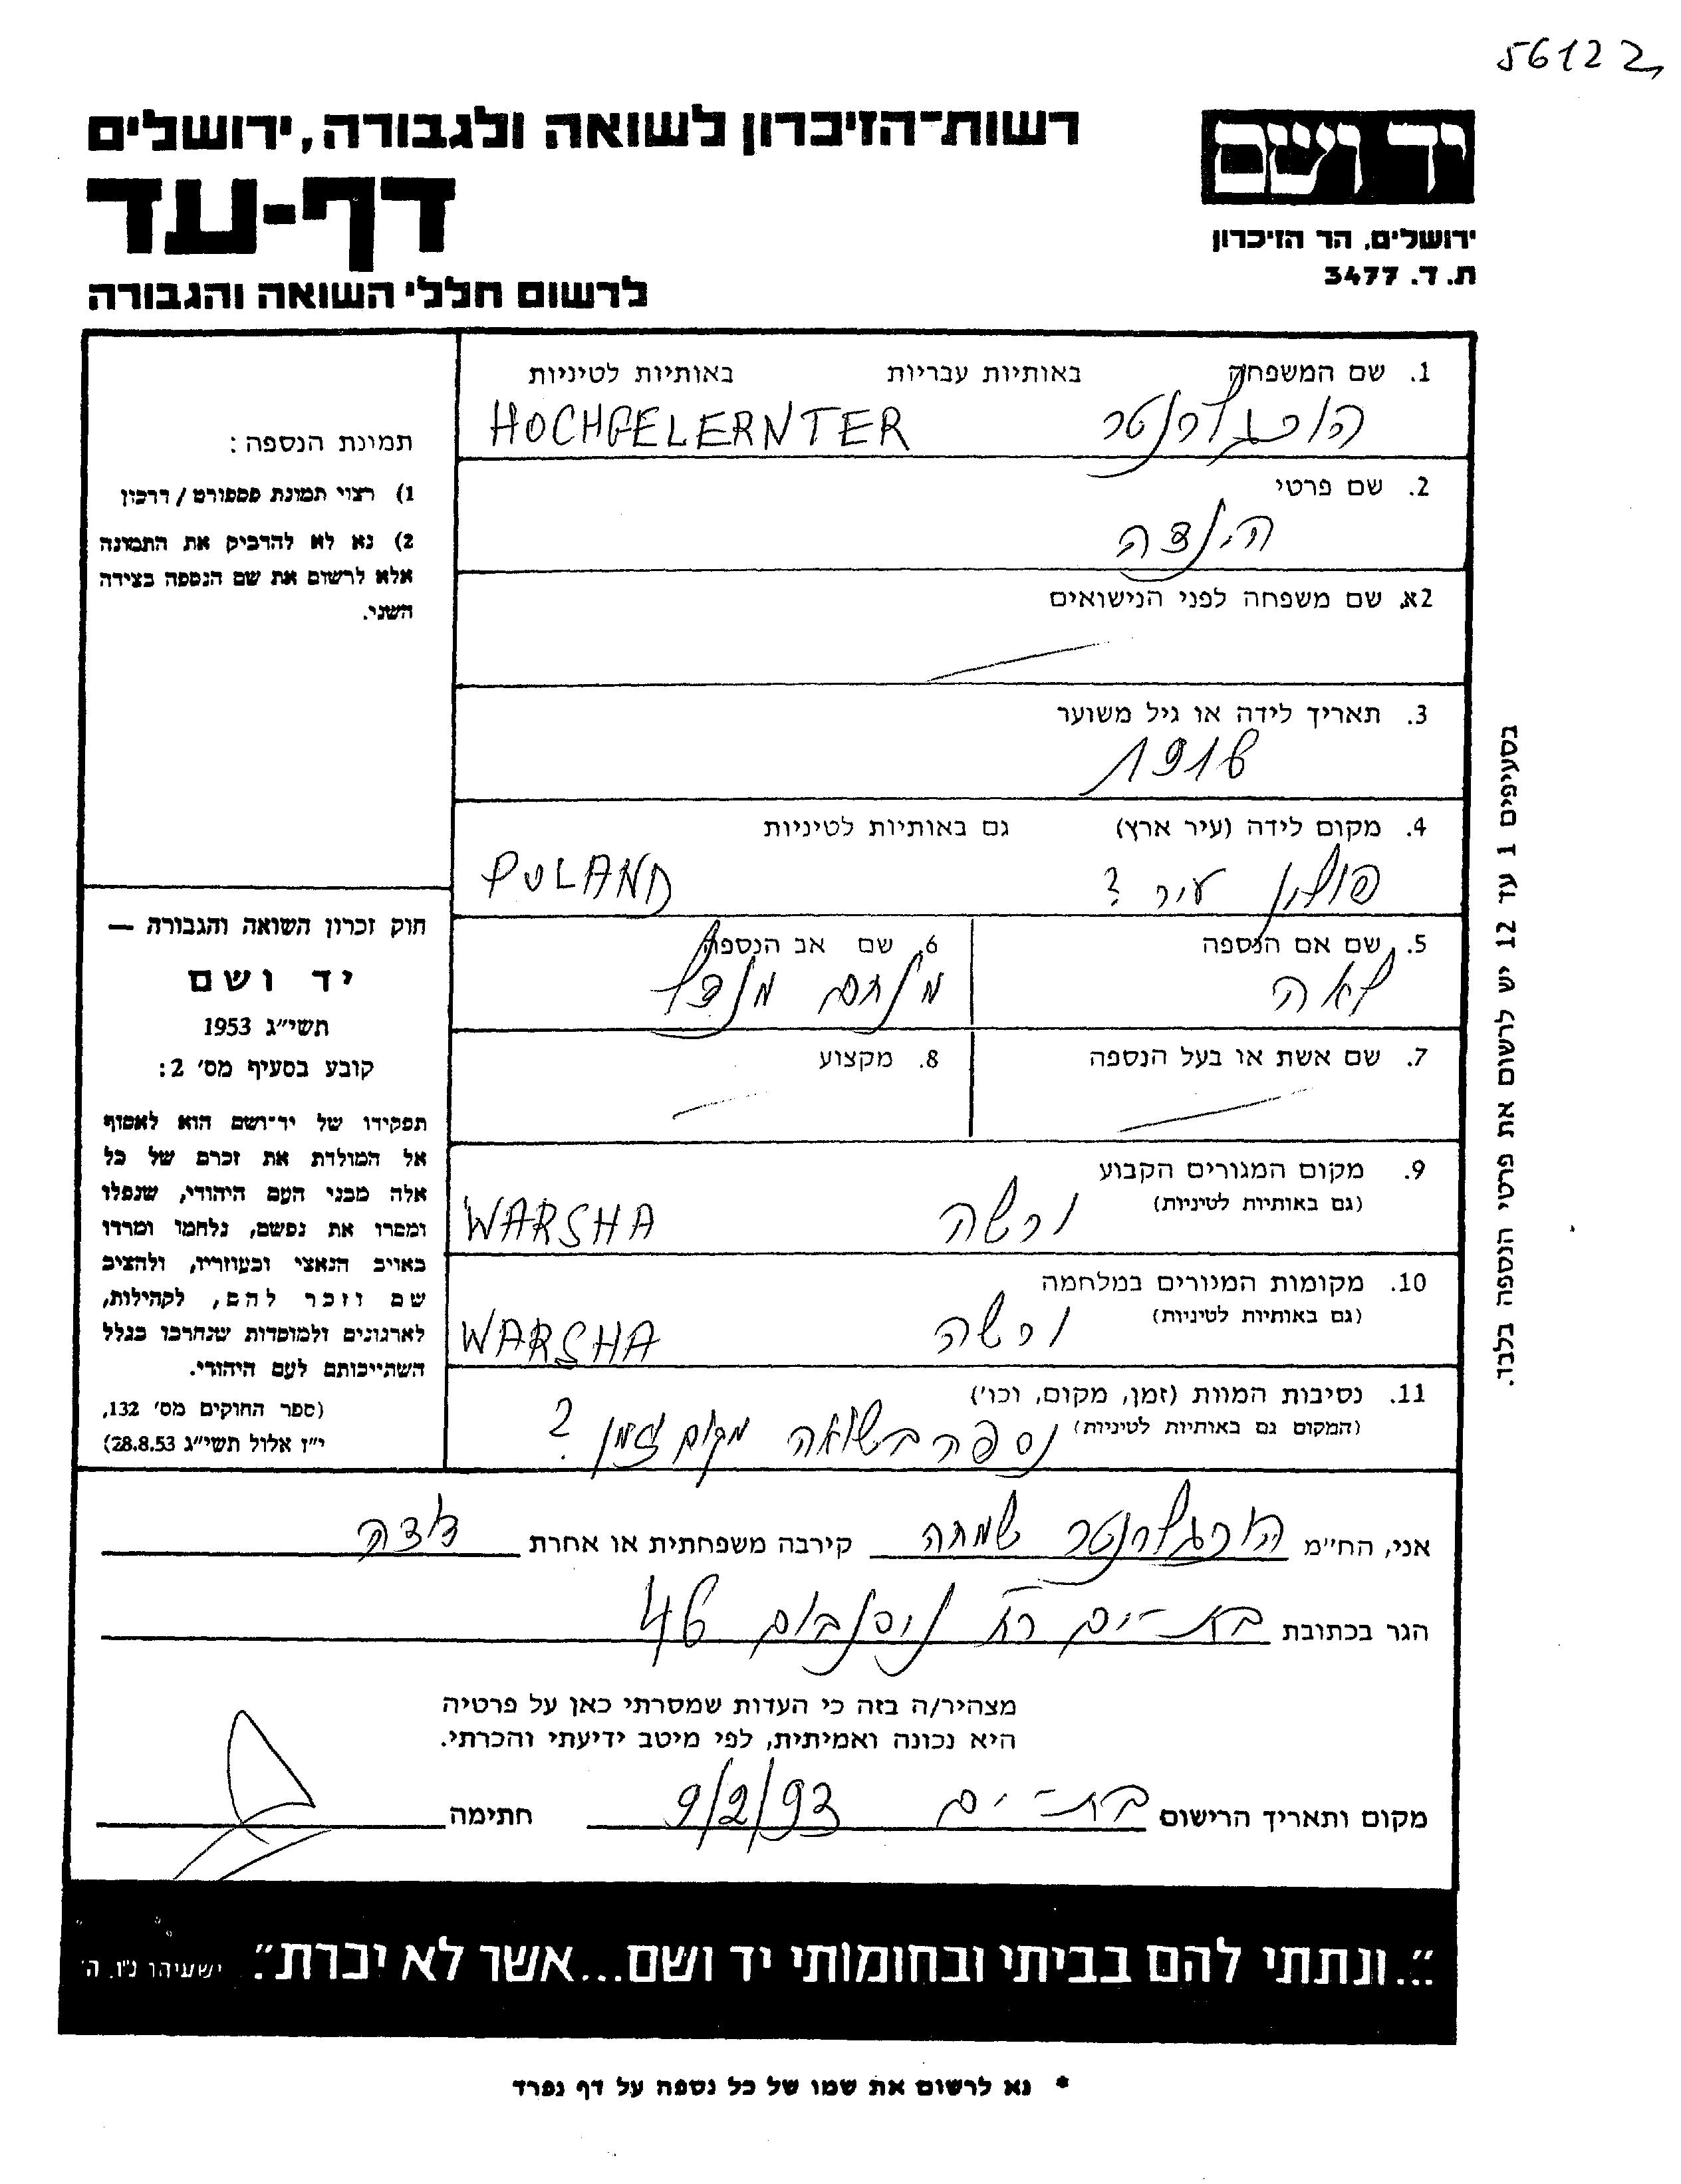 56122
יד ושם
ירושלים, הר הזיכרון
ת. ד. 3477
רשות-הזיכרון לשואה ולגבורה, ירושלים
דף-עד
לרשום חללי השואה והגבורה
1. שם המשפחה באותיות עבריות באותיות לטיניות
הוכגלרנטר HOCHGELERNTER
2. שם פרטי
הינדה
2א. שם משפחה לפני הנישואים
3. תאריך לידה או גיל משוער
1918
4. מקום לידה (עיר ארץ) גם באותיות לטיניות
פולין עיר ? POLAND
5. שם אם הנספה 6. שם אב הנספה
לאה מנחם מנדל
7. שם אשת או בעל הנספה 8. מקצוע
9. מקום המגורים הקבוע
(גם באותיות לטיניות)
ורשה WARSHA
10. מקומות המגורים במלחמה
(גם באותיות לטיניות)
ורשה WARSHA
11. נסיבות המוות (זמן, מקום, וכו')
(המקום גם באותיות לטיניות)
נספה בשואה מקום וזמן ?
תמונת הנספה :
1) רצוי תמונת פספורט / דרכון
2) נא לא להדביק את התמונה
אלא לרשום את שם הנספה בצידה
השני.
חוק זכרון השואה והגבורה —
יד ושם
תשי"ג 1953
קובע בסעיף מס' 2:
תפקידו של יד-ושם הוא לאסוף
אל המולדת את זכרם של כל
אלה מבני העם היהודי, שנפלו
ומסרו את נפשם, נלחמו ומרדו
באויב הנאצי ובעוזריו, ולהציב
שם וזכר להם, לקהילות,
לארגונים ולמוסדות שנחרבו בגלל
השתייכותם לעם היהודי.
(ספר החוקים מס' 132,
י"ז אלול תשי"ג 28.8.53)
בסעיפים 1 עד 12 יש לרשום את פרטי הנספה בלבד.
אני, הח"מ הוכגלרנטר שמחה קירבה משפחתית או אחרת דודה
הגר בכתובת בת-ים רח' ניסנבוים 46
מצהיר/ה בזה כי העדות שמסרתי כאן על פרטיה
היא נכונה ואמיתית, לפי מיטב ידיעתי והכרתי.
מקום ותאריך הרישום בת-ים 9/2/93 חתימה
"...ונתתי להם בביתי ובחומותי יד ושם...אשר לא יכרת". ישעיהו נ"ו, ה'
* נא לרשום את שמו של כל נספה על דף נפרד